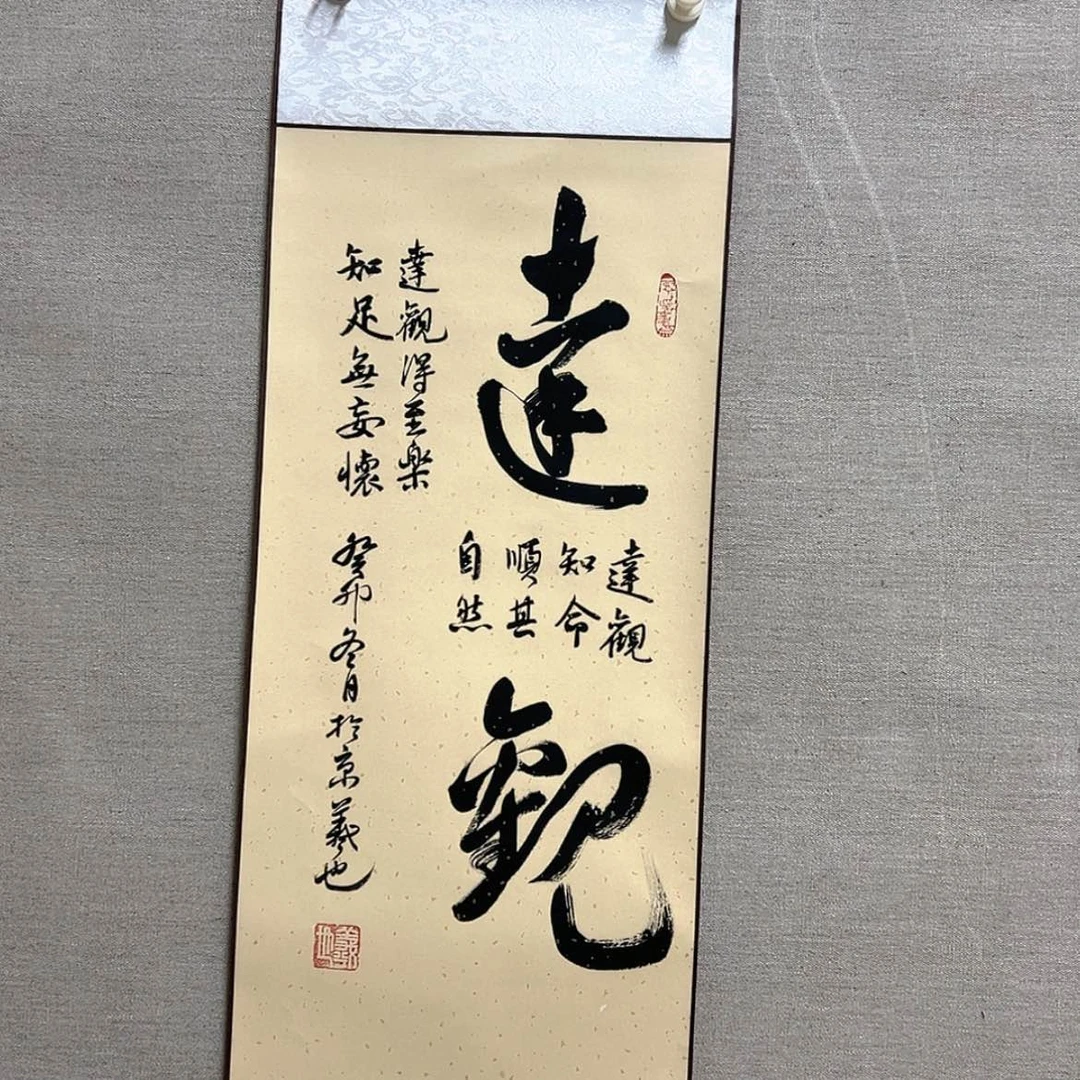 達觀
達觀
知命
順其
自然
達觀得至樂
知足無妄懷
癸卯冬月於京羲也